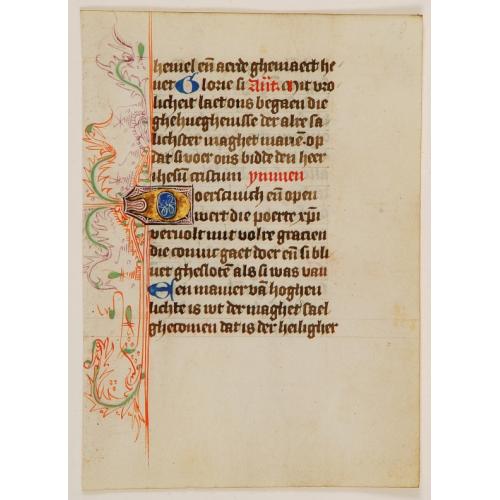 hemel en̄ aerde ghemaect he
uet Glorie si Aūt. Mit vro
licheit laet ons begaen die
ghehueghenisse der alre sa
lichster maghet marien̄. op
dat si voer ons bidde den heer
ihesū cristum ymmen
oerscinich en̄ open
wert die poerte xp̄i
veruolt mit volre gracien
die coninc gaet doer en̄ si bli
uet ghesloten als si was van
Een manier vā hoghen
lichte is wt der maghet sael
ghecomen dat is der heiligher